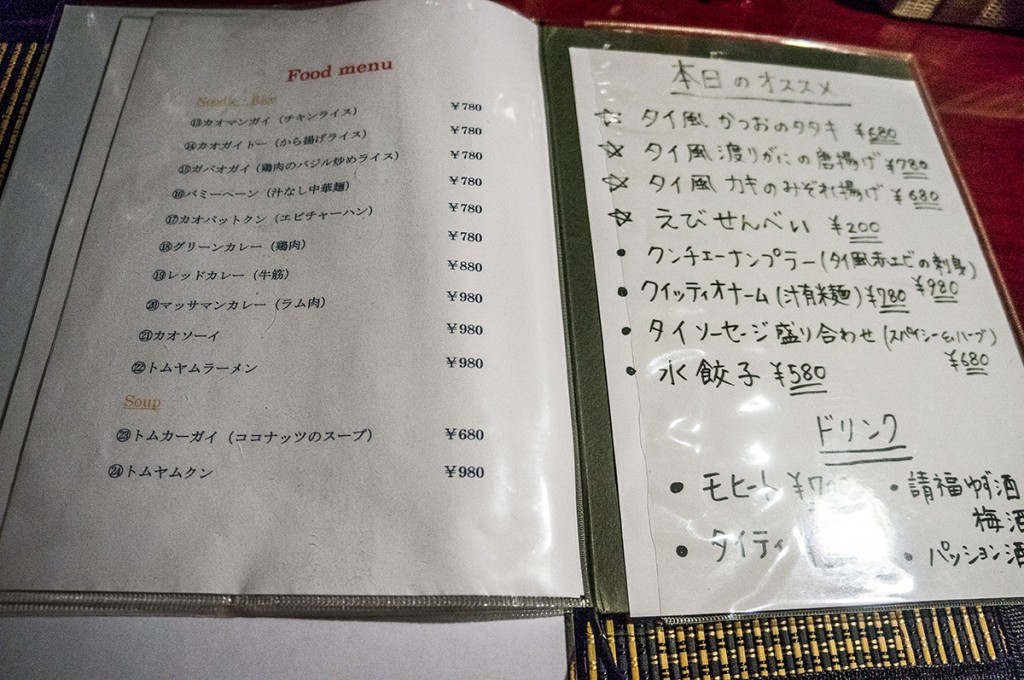 Food menu
Noodle・Rice
⑬カオマンガイ（チキンライス） ￥780
⑭カオガイトー（から揚げライス） ￥780
⑮ガパオガイ（鶏肉のバジル炒めライス） ￥780
⑯バミーヘーン（汁なし中華麺） ￥780
⑰カオパットクン（エビチャーハン） ￥780
⑱グリーンカレー（鶏肉） ￥780
⑲レッドカレー（牛筋） ￥880
⑳マッサマンカレー（ラム肉） ￥980
㉑カオソーイ ￥980
㉒トムヤムラーメン ￥980
Soup
㉓トムカーガイ（ココナッツのスープ） ￥680
㉔トムヤムクン ￥980
本日のオススメ
☆ タイ風 かつおのタタキ ￥680
☆ タイ風 渡りがにの唐揚げ ￥780
☆ タイ風 カキのみぞれ揚げ ￥680
☆ えびせんべい ￥200
・クンチェーナンプラー（タイ風赤エビの刺身） ￥980
・クイッティオナーム（汁有米麺）￥780
・タイソーセージ盛り合わせ（スパイシー＆ハーブ） ￥680
・水餃子 ￥580
ドリンク
・モヒート
・請福ゆず酒
梅酒
・タイティ
・パッション酒